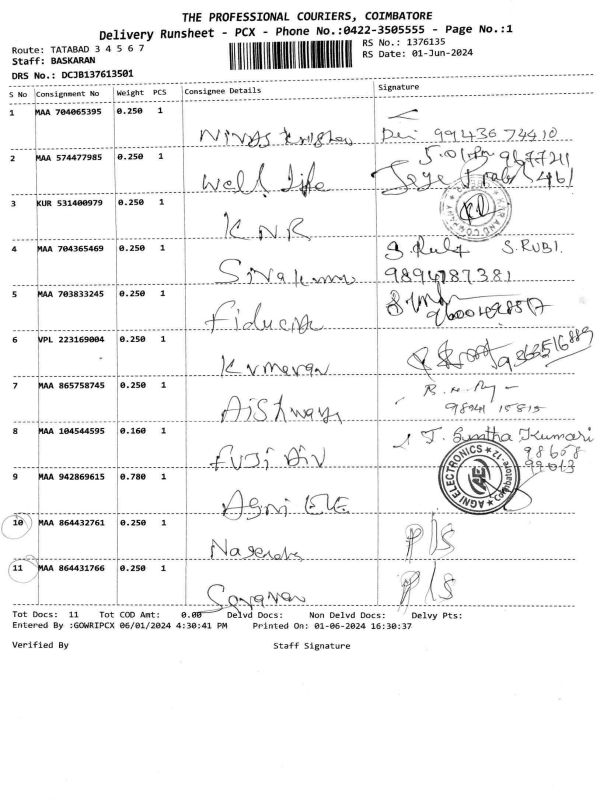 THE PROFESSIONAL COURIERS, COIMBATORE
Delivery Runsheet - PCX - Phone No.:0422-3505555 - Page No.:1
Route: TATABAD 3 4 5 6 7
RS No.: 1376135
Staff: BASKARAN
RS Date: 01-Jun-2024
DRS No.: DCJB137613501
S No Consignment No Weight PCS Consignee Details Signature
1 MAA 704065395 0.250 1
99436 74410
2 MAA 574477985 0.250 1
Well life
3 KUR 531400979 0.250 1
K.N.R
4 MAA 704365469 0.250 1 S. RUBI.
Sivakumar 9894787381
5 MAA 703833245 0.250 1
Fiducia
6 VPL 223169004 0.250 1
Kumaran 9363516889
7 MAA 865758745 0.250 1
Aishwarya
8 MAA 104544595 0.160 1 Kumari
Fuji Div
9 MAA 942869615 0.780 1
AGNI ELECTRONICS Coimbatore-12
Agni
10 MAA 864432761 0.250 1
P/S
11 MAA 864431766 0.250 1
P/S
Tot Docs: 11 Tot COD Amt: 0.00 Delvd Docs: Non Delvd Docs: Delvy Pts:
Entered By :GOWRIPCX 06/01/2024 4:30:41 PM Printed On: 01-06-2024 16:30:37
Verified By Staff Signature